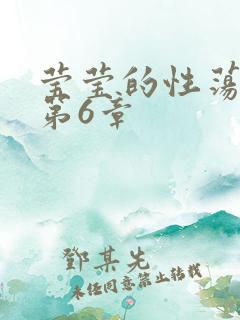 莹莹的性荡
第6章
鄧某先
未经同意禁止转载